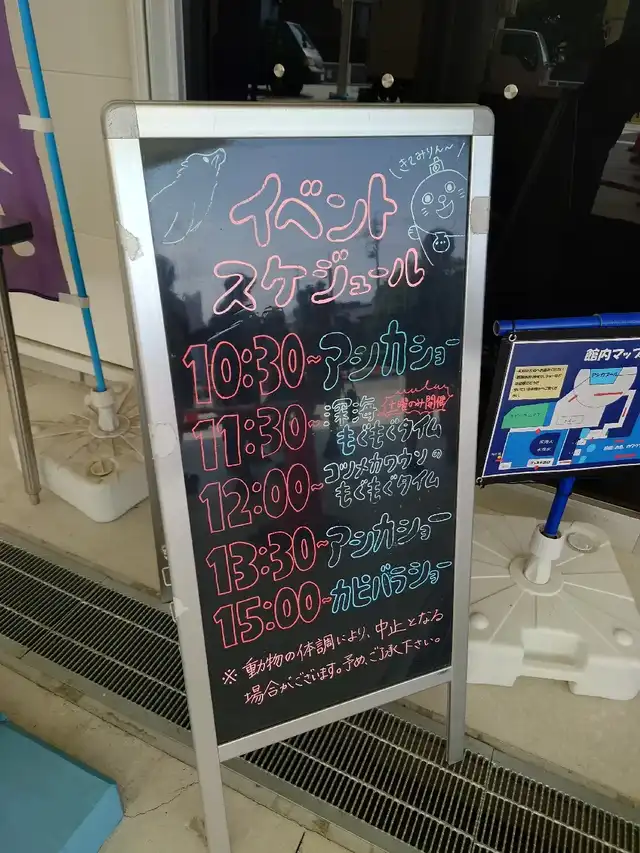 きてみりん〜
イベント
スケジュール
10:30〜アシカショー
11:30〜深海もぐもぐタイム
土曜のみ開催
12:00〜コツメカワウソのもぐもぐタイム
13:30〜アシカショー
15:00〜カピバラショー
※動物の体調により、中止となる
場合がございます。予め、ご了承下さい。
館内マップ